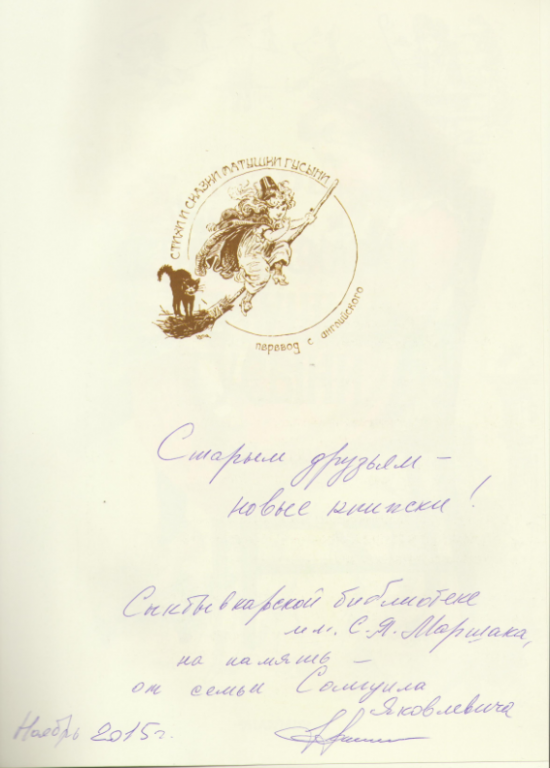 СТИХИ И СКАЗКИ МАТУШКИ ГУСЫНИ
перевод с английского
Старым друзьям –
новые книжки!
Сыктывкарской библиотеке
им. С.Я. Маршака,
на память –
от семьи Самуила
Яковлевича
Ноябрь 2015г.